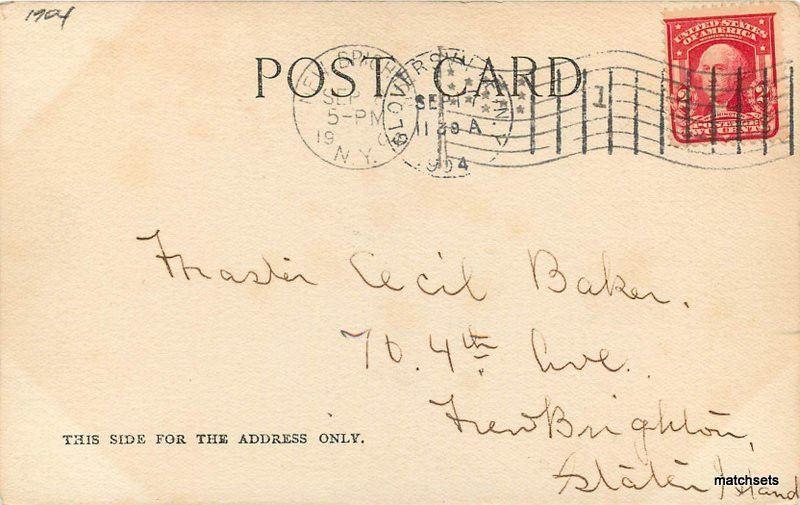 1904
POST CARD
NEW BRIGHTON
SEP
5-PM
19
N.Y.
GLOVERSVILLE, N.Y.
SEP
11 30 A
1904
1
UNITED STATES
OF AMERICA
2 2
TWO CENTS
Master Cecil Baker.
70. 4th Ave.
New Brighton,
Staten Island
THIS SIDE FOR THE ADDRESS ONLY.
matchsets